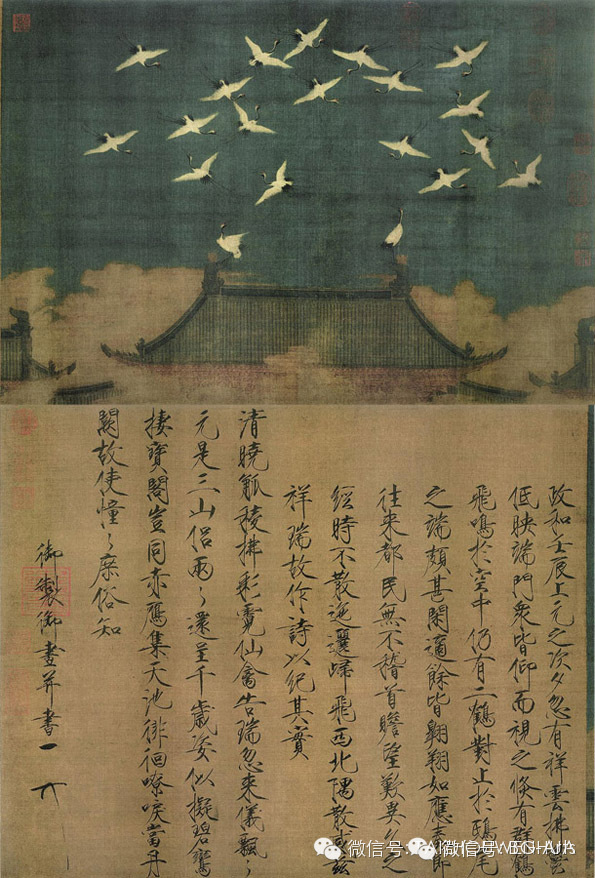 政和壬辰上元之次夕忽有祥雲拂鬱
低映端門衆皆仰而視之倏有群鶴
飛鳴於空中仍有二鶴對止於鴟尾
之端頗甚閑適餘皆翱翔如應奏節
往来都民無不稽首瞻望歎異久之
經時不散迤邐歸飛西北隅散感茲
祥瑞故作詩以紀其實
清曉觚稜拂彩霓仙禽告瑞忽来儀飄〻
元是三山侶兩〻還呈千歲姿似擬碧鸞
棲寶閣豈同赤鴈集天池徘徊嘹唳當丹
闕故使憧〻庶俗知
御製御畫并書
微信号: